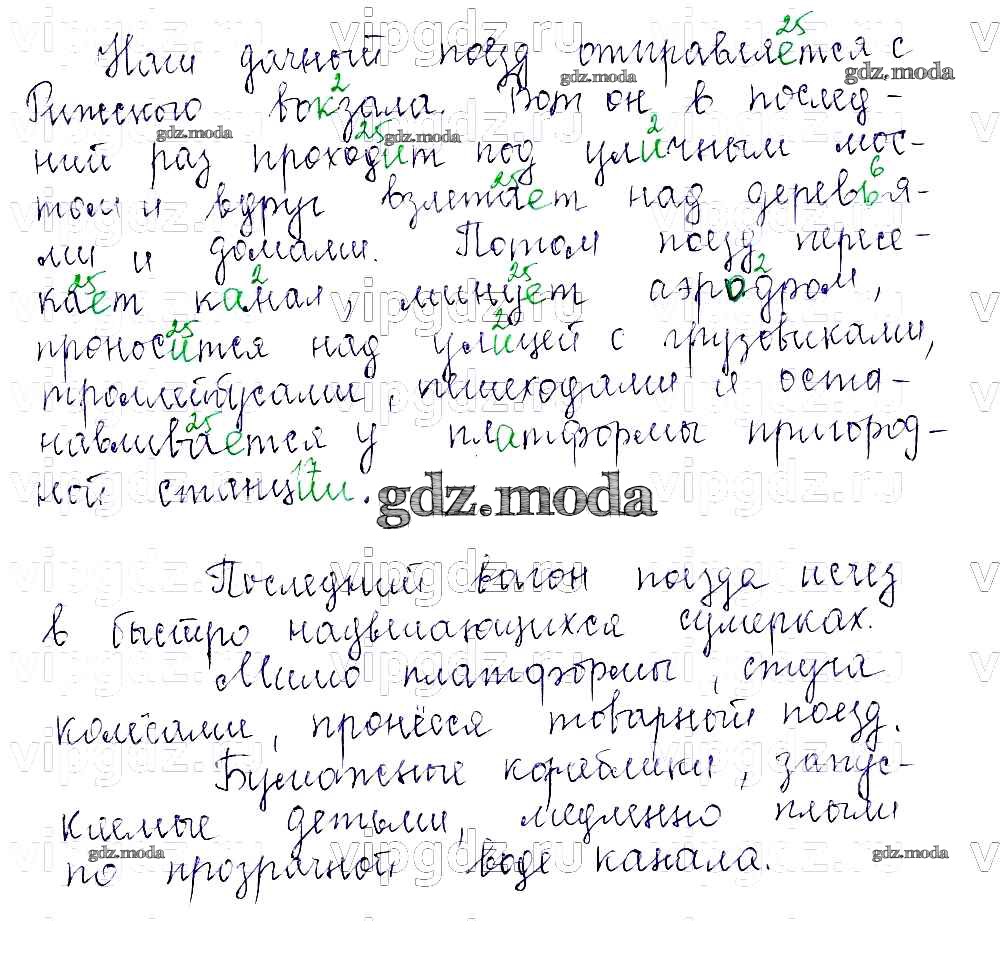 Наш дачный поезд отправляется с
Рижского вокзала. Вот он в послед-
ний раз проходит под уличным мос-
том и вдруг взлетает над деревья-
ми и домами. Потом поезд пересе-
кает канал, минует аэродром,
проносится над улицей с грузовиками,
троллейбусами, пешеходами и оста-
навливается у платформы пригород-
ной станции.
gdz.moda
Последний вагон поезда исчез
в быстро надвигающихся сумерках.
Мимо платформы, стуча
колёсами, пронёсся товарный поезд.
Бумажные кораблики, запус-
каемые детьми, медленно плыли
по прозрачной воде канала.